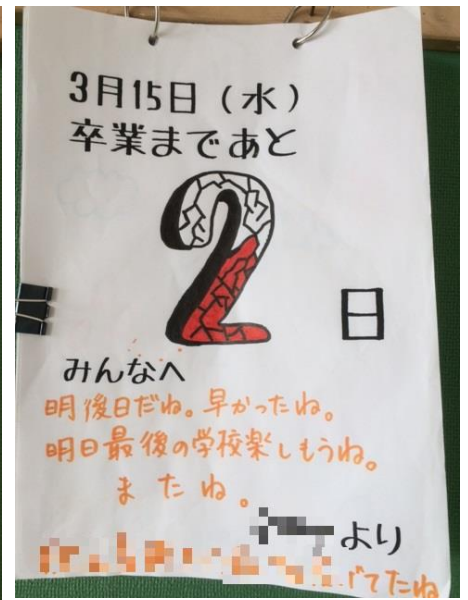 3月15日（水）
卒業まであと
2
日
みんなへ
明後日だね。早かったね。
明日最後の学校楽しもうね。
またね。
より
てたね